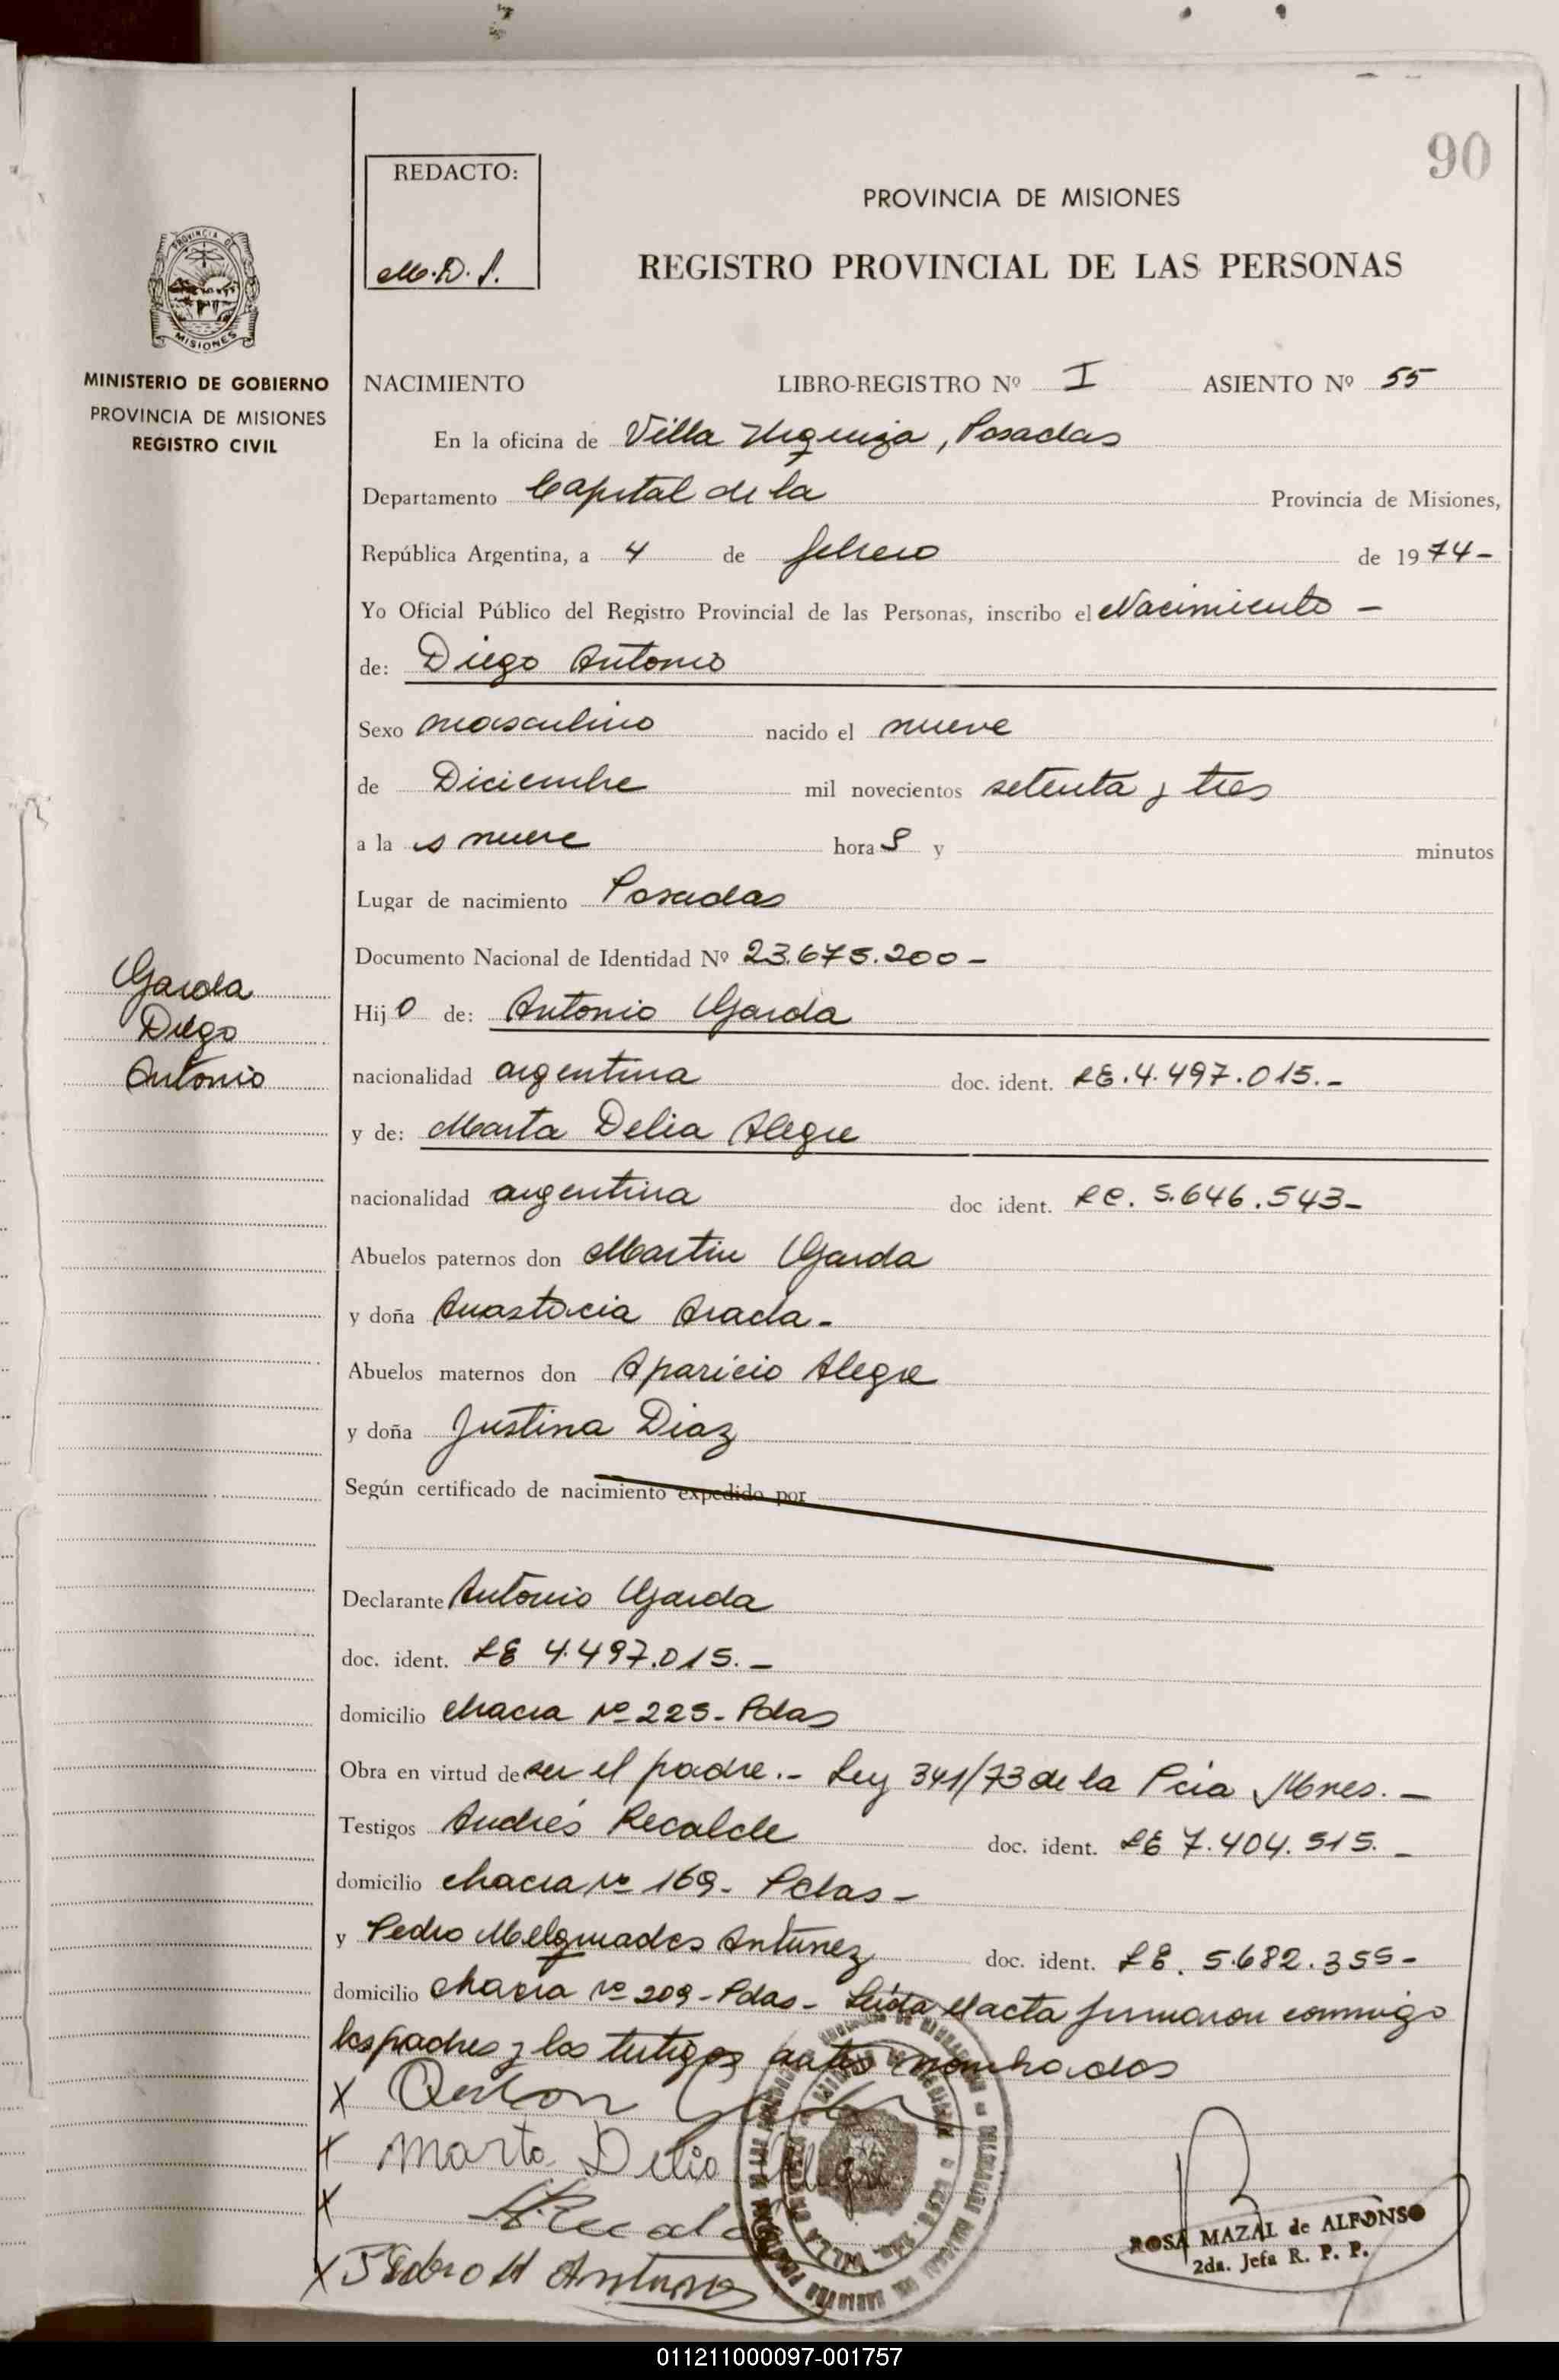 90
REDACTO:
M.D.S.
PROVINCIA DE MISIONES
REGISTRO PROVINCIAL DE LAS PERSONAS
PROVINCIA DE
MISIONES
MINISTERIO DE GOBIERNO
PROVINCIA DE MISIONES
REGISTRO CIVIL
NACIMIENTO LIBRO-REGISTRO Nº I ASIENTO Nº 55
En la oficina de Villa Urquiza, Posadas
Departamento Capital de la Provincia de Misiones,
República Argentina, a 4 de febrero de 1974-
Yo Oficial Público del Registro Provincial de las Personas, inscribo el Nacimiento -
de: Diego Antonio
Sexo masculino nacido el nueve
de Diciembre mil novecientos setenta y tres
a la s nueve hora s y minutos
Lugar de nacimiento Posadas
Documento Nacional de Identidad Nº 23.675.200-
Garda
Diego
Antonio
Hij o de: Antonio Garda
nacionalidad argentina doc. ident. LE.4.497.015.-
y de: Marta Delia Alegre
nacionalidad argentina doc ident. LC. 5.646.543-
Abuelos paternos don Martin Garda
y doña Anastacia
Abuelos maternos don Aparicio Alegre
y doña Justina Diaz
Según certificado de nacimiento expedido por
Declarante Antonio Garda
doc. ident. LE 4.497.015.-
domicilio chacra Nº 225- Pdas
Obra en virtud de ser el padre.- Ley 341/73 de la Pcia Mnes.-
Testigos Andrés Recalde doc. ident. LE 7.404.515.-
domicilio chacra Nº 169- Pdas-
y Pedro Melquiades Antunez doc. ident. LE. 5.682.355-
domicilio chacra Nº 209-Pdas- Leida el acta firmaron conmigo
los padres y los testigos antes nombrados
X
X Marta Delia Alegre
X
X Pedro M Antunez
ROSA MAZAL de ALFONSO
2da. Jefa R. P. P.
011211000097-001757